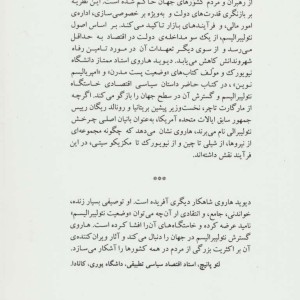 از رهبران و مردم کشورهای جهان حاکم شده است. این نظریه
بر بازنگری قدرت‌های دولت و به‌ویژه بر خصوصی‌سازی، اداره‌ی
امور مالی، و فرآیندهای بازار تأکید می‌کند. بر اساس اصول
نئولیبرالیسم، از یک سو مداخله‌ی دولت در اقتصاد به حداقل
می‌رسد و از سوی دیگر تعهدات آن در مورد تأمین رفاه
شهروندانش کاهش می‌یابد. دیوید هاروی استاد ممتاز دانشگاه
نیویورک و مؤلف کتاب‌های «وضعیت پست مدرن» و «امپریالیسم
نوین»، در کتاب حاضر داستان سیاسی اقتصادی خاستگاه
نئولیبرالیسم و گسترش آن در سطح جهان را بازگو می‌کند. اگرچه
از مارگارت تاچر، نخست‌وزیر پیشین بریتانیا و رونالد ریگان رییس
جمهور سابق ایالات متحده آمریکا، به‌عنوان بانیان اصلی چرخش
نئولیبرالی نام می‌برند، هاروی نشان می‌دهد که چگونه مجموعه‌ای
از نیروها، از شیلی تا چین و از نیویورک تا مکزیکو سیتی، در این
فرآیند نقش داشته‌اند.
***
دیوید هاروی شاهکار دیگری آفریده است. او توصیفی بسیار زنده،
خواندنی، جامع، و انتقادی از آن‌چه می‌توان «وضعیت نئولیبرالیسم»
نامید عرضه کرده و خاستگاه‌های آن را افشا کرده است. هاروی
گسترش نئولیبرالیسم در جهان را دنبال می‌کند و آثار ویران‌کننده‌ی
آن بر اکثریت بزرگی از مردم در همه کشورها را آشکار می‌سازد.
لئو پانیچ، استاد اقتصاد سیاسی تطبیقی، دانشگاه یورک، کانادا.